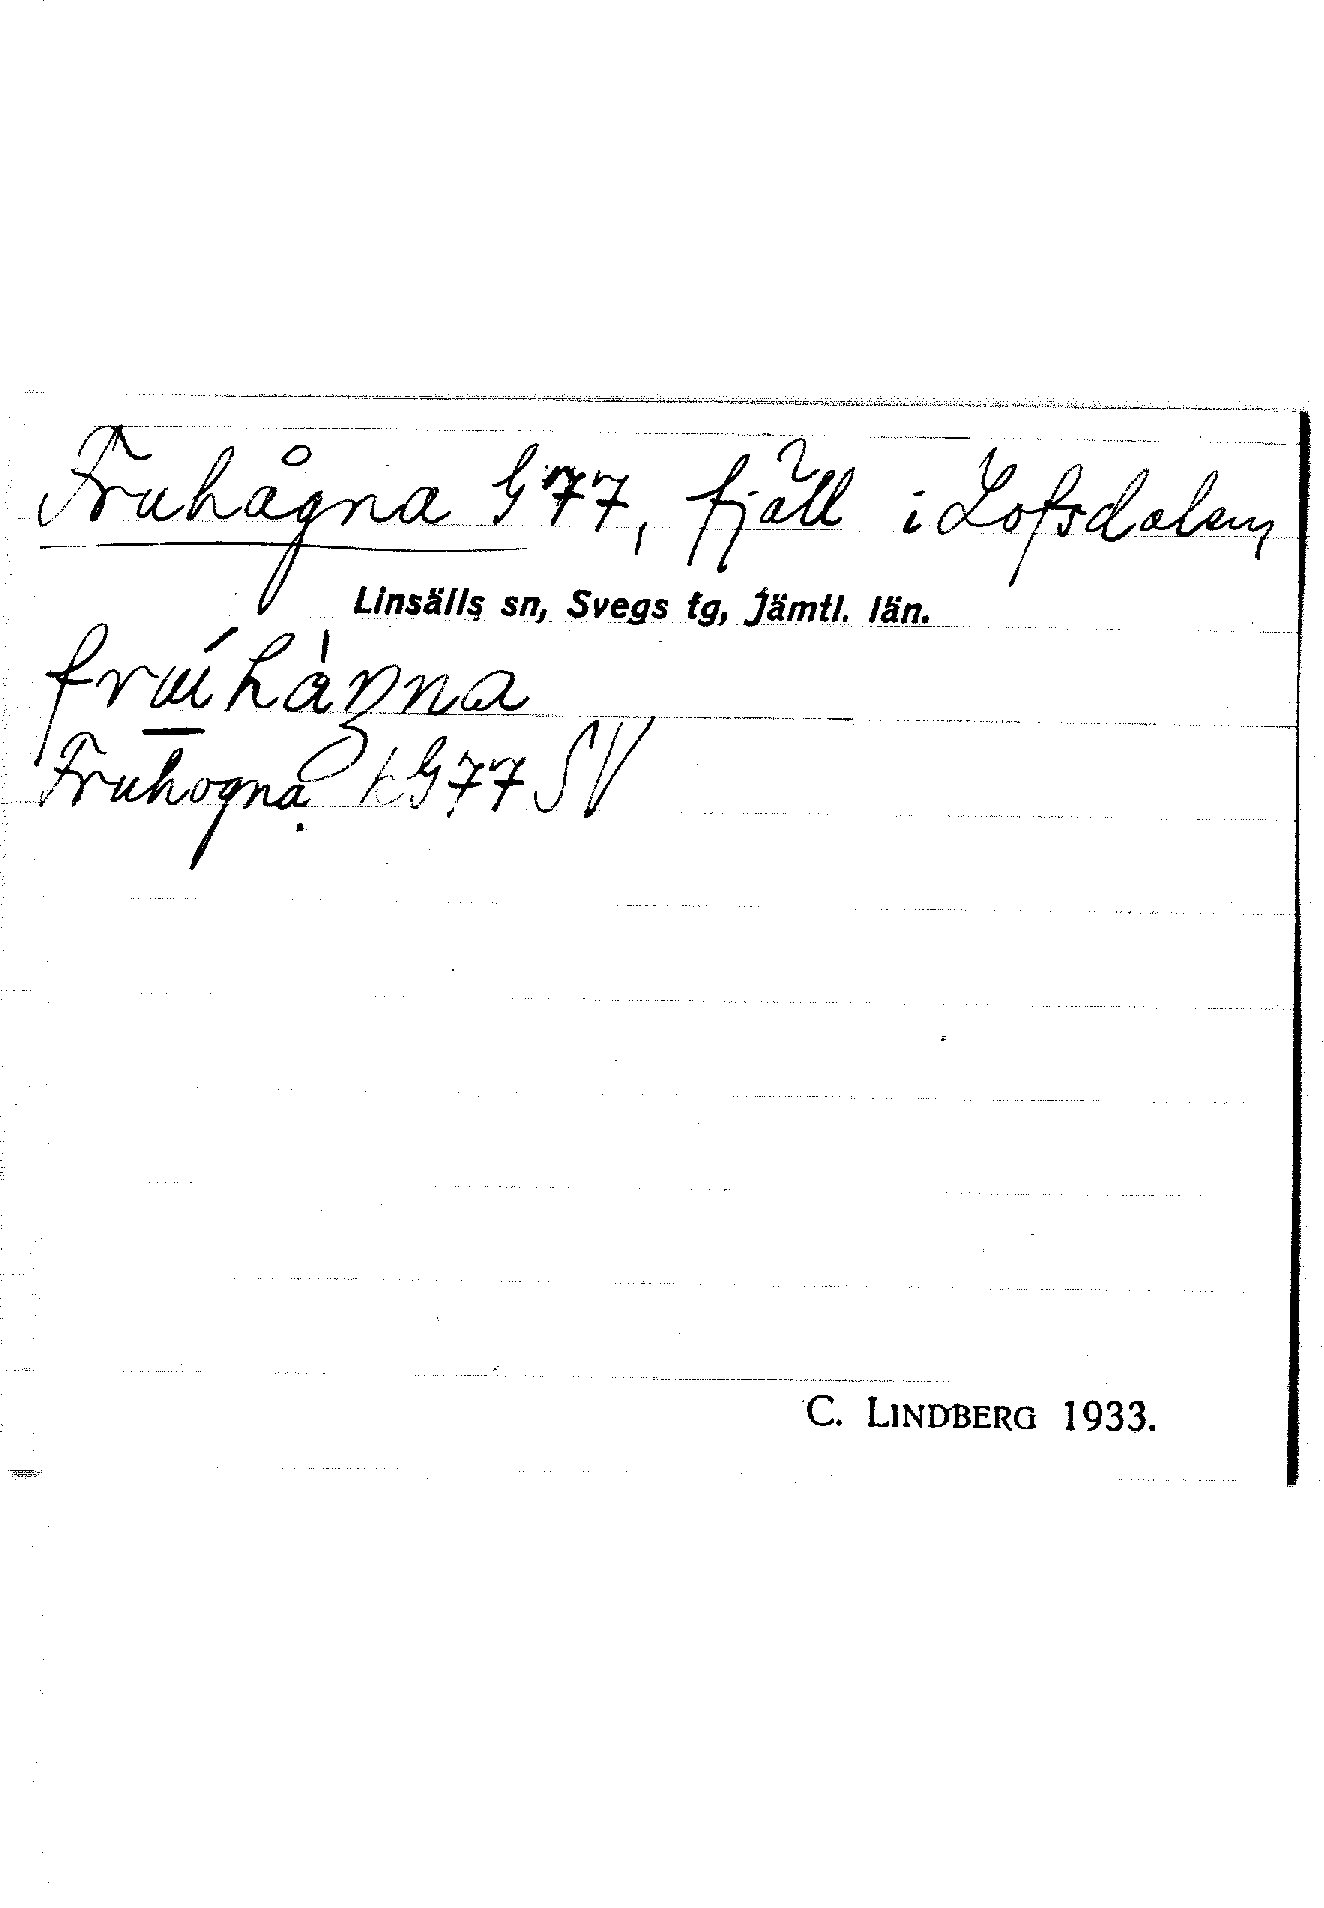 Fruhågna G 77, fjäll i Lofsdalen,
Linsälls sn, Svegs tg, Jämtl. län.
Fruhogna k G 77 SV
C. LINDBERG 1933.